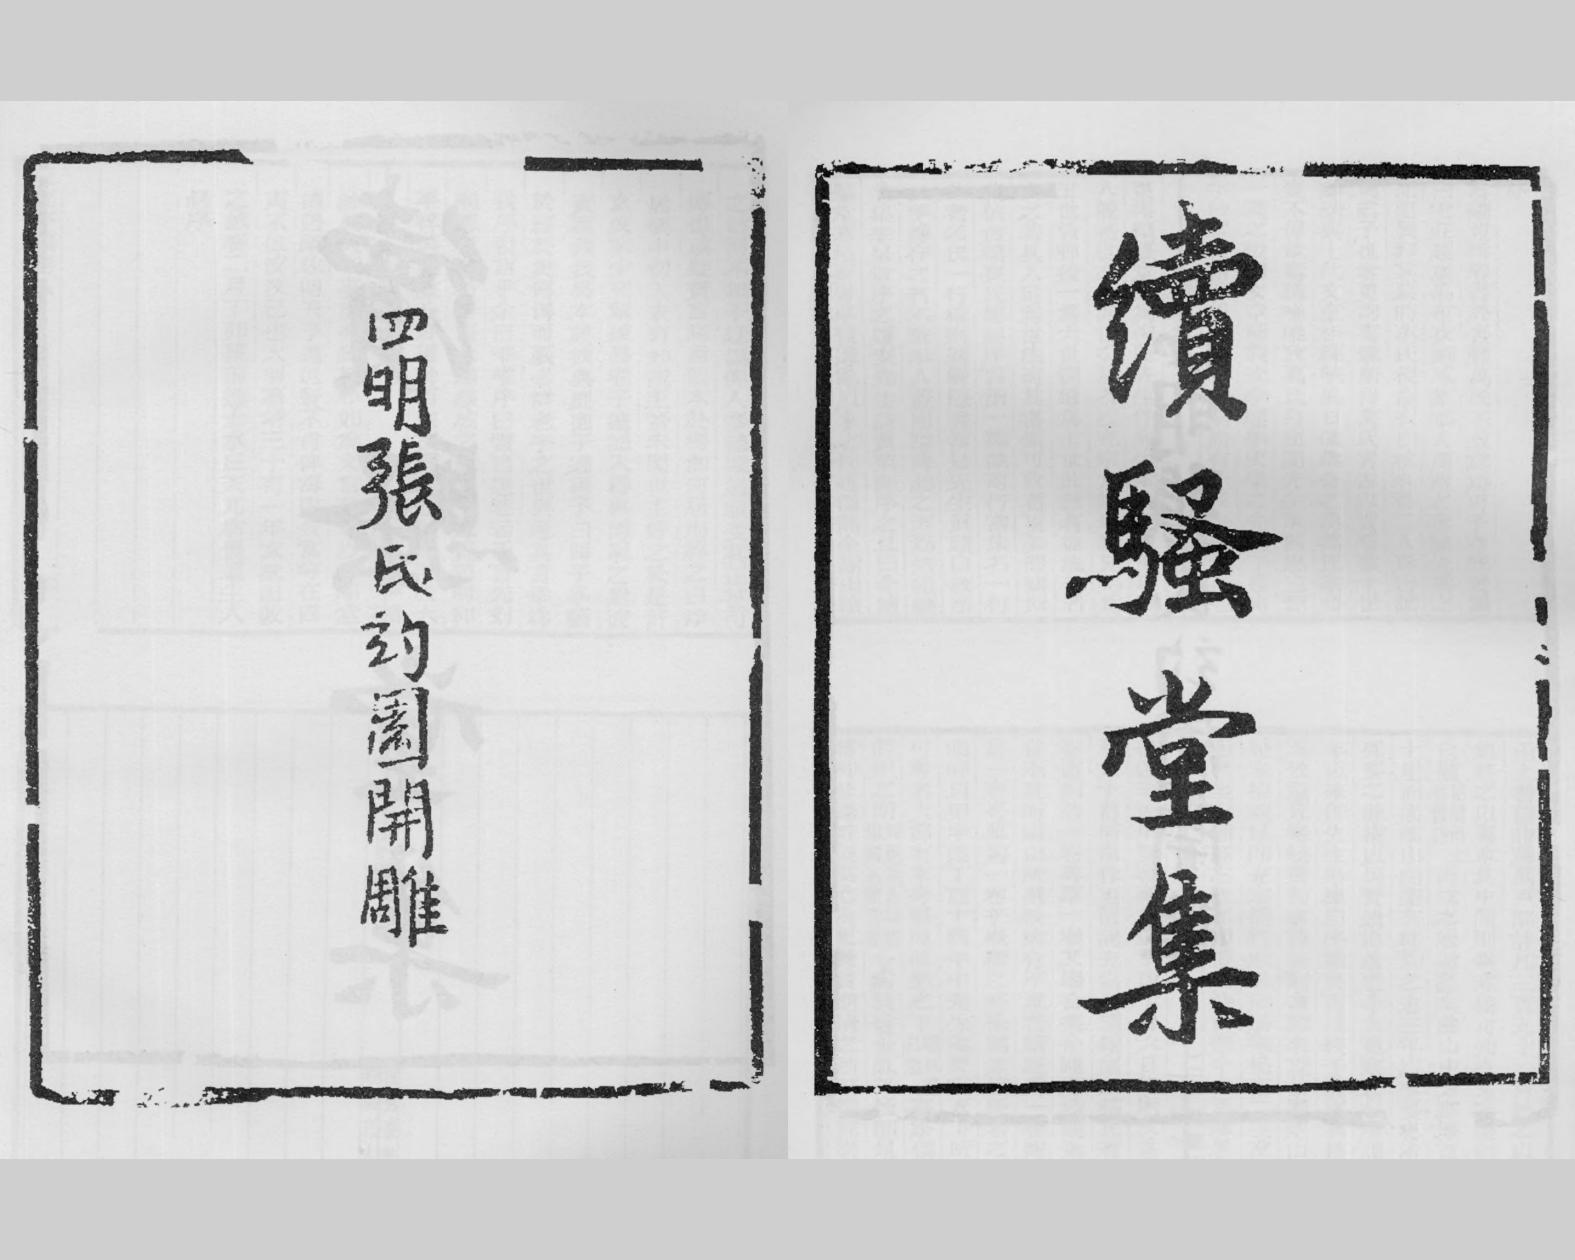 續騷堂集
四明張氏約園開雕